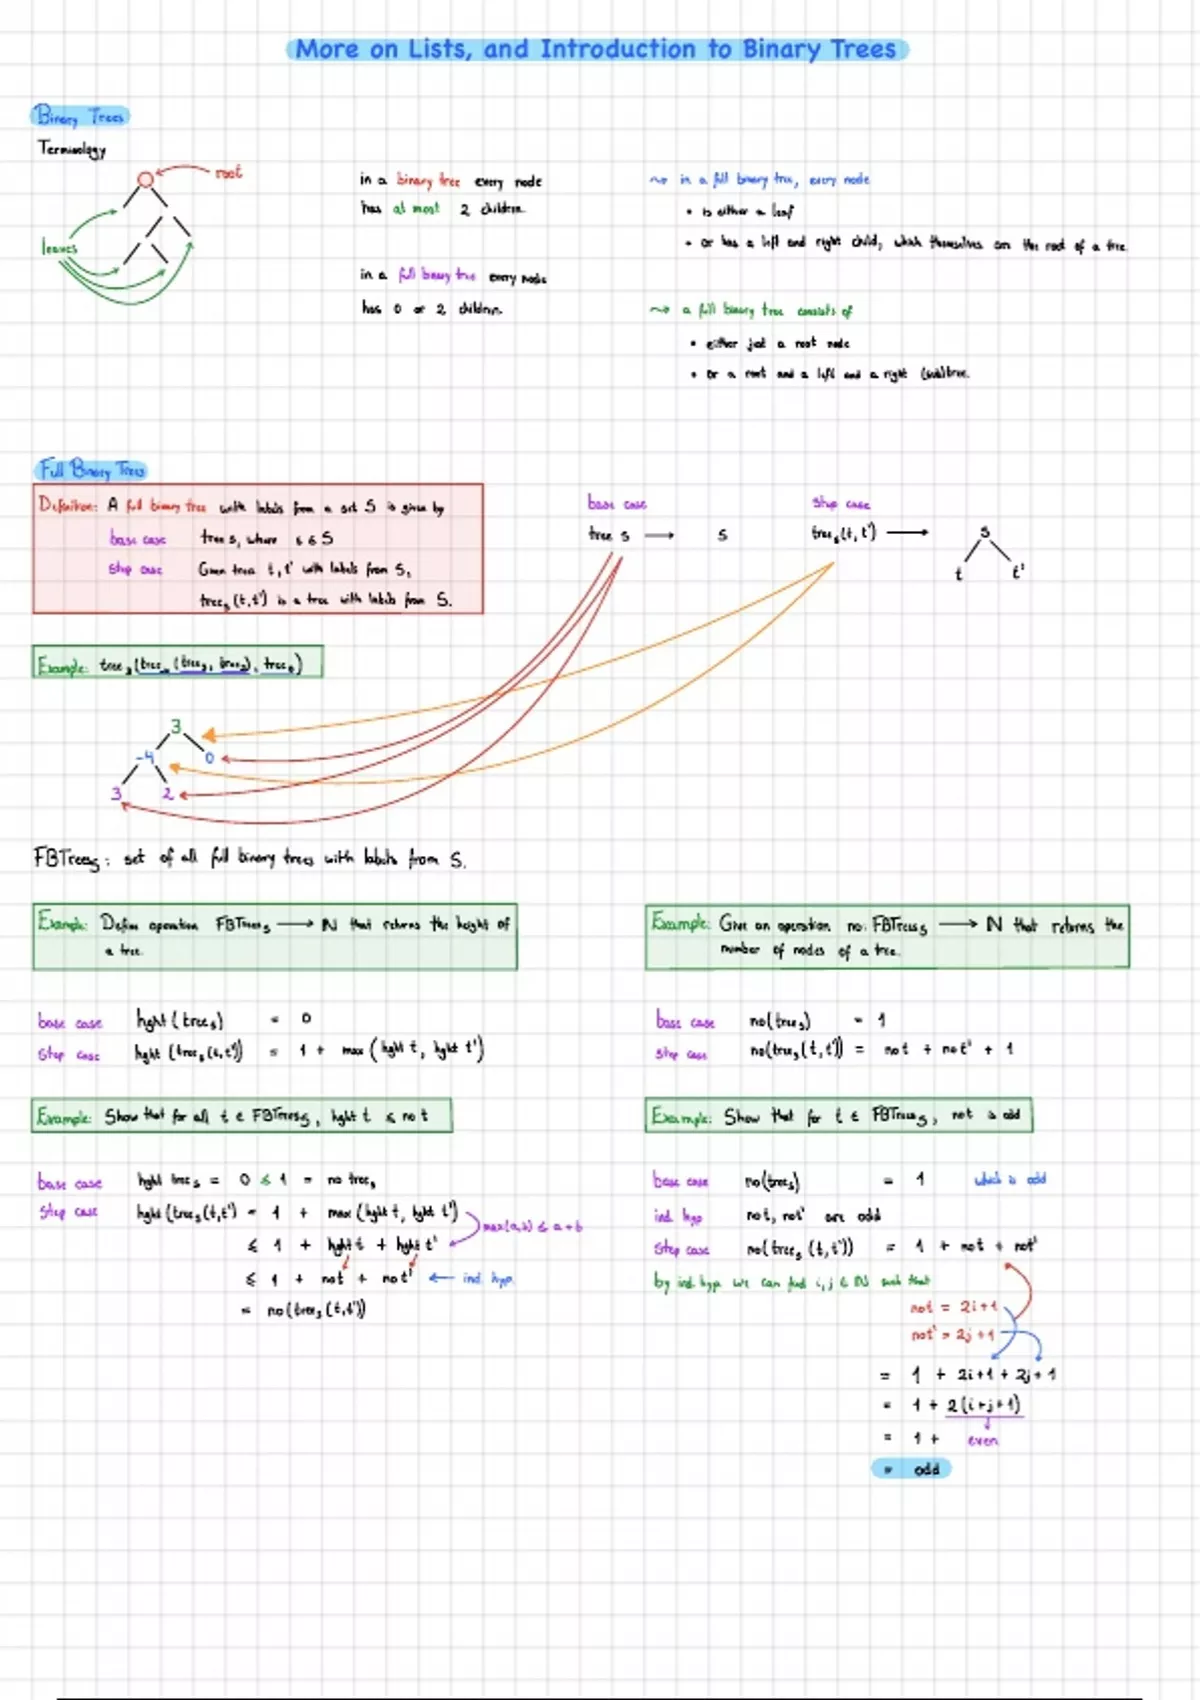 More on Lists, and Introduction to Binary Trees
Binary Trees
Terminology
root
leaves
in a binary tree every node
has at most 2 children.
in a full binary tree every node
has 0 or 2 children.
~> in a full binary tree, every node
• is either a leaf
• or has a left and right child, which themselves are the root of a tree.
~> a full binary tree consists of
• either just a root node
• or a root and a left and a right (sub)tree.
Full Binary Trees
Definition: A full binary tree with labels from a set S is given by
base case tree s, where s ∈ S
step case Given trees t, t' with labels from S,
tree_s (t, t') is a tree with labels from S.
base case
tree s → s
step case
tree_s (t, t') →
s
t t'
Example: tree_3 (tree_-4 (tree_3, tree_2), tree_0)
3
-4 0
3 2
FBTrees_S: set of all full binary trees with labels from S.
Example: Define operation FBTrees_S → N that returns the height of
a tree.
base case hght (tree_s) = 0
step case hght (tree_s (t, t')) = 1 + max (hght t, hght t')
Example: Give an operation no: FBTrees_S → N that returns the
number of nodes of a tree.
base case no(tree_s) = 1
step case no(tree_s (t, t')) = no t + no t' + 1
Example: Show that for all t ∈ FBTrees_S, hght t ≤ no t
base case hght tree_s = 0 ≤ 1 = no tree_s
step case hght (tree_s (t, t')) = 1 + max (hght t, hght t')
max(a,b) ≤ a + b
≤ 1 + hght t + hght t'
≤ 1 + no t + no t' ← ind. hyp.
= no (tree_s (t, t'))
Example: Show that for t ∈ FBTrees_S, no t is odd
base case no(tree_s) = 1 which is odd
ind. hyp no t, no t' are odd
step case no(tree_s (t, t')) = 1 + no t + no t'
by ind. hyp. we can find i, j ∈ N such that
no t = 2i + 1
no t' = 2j + 1
= 1 + 2i+1 + 2j+1
= 1 + 2(i+j+1)
= 1 + even
= odd